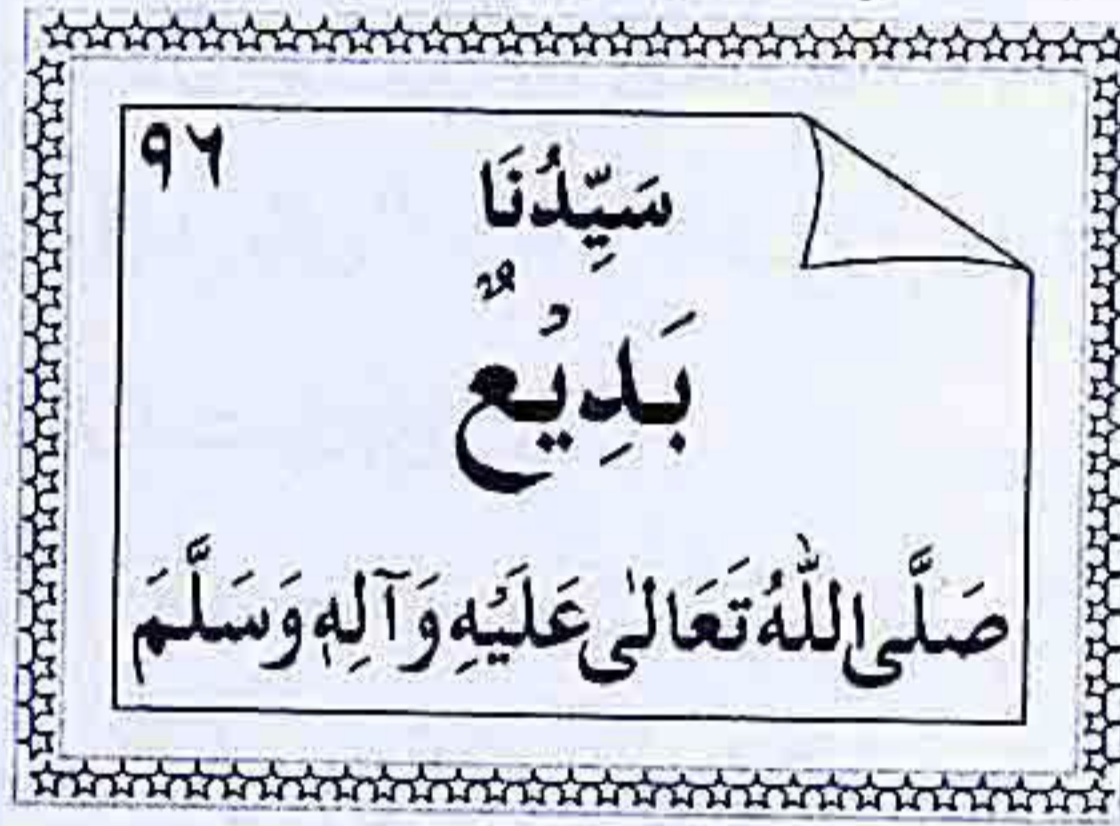 ۹۶
سَيِّدُنَا
بَدِيْعٌ
صَلَّى اللّٰهُ تَعَالٰى عَلَيْهِ وَآلِهٖ وَسَلَّمَ